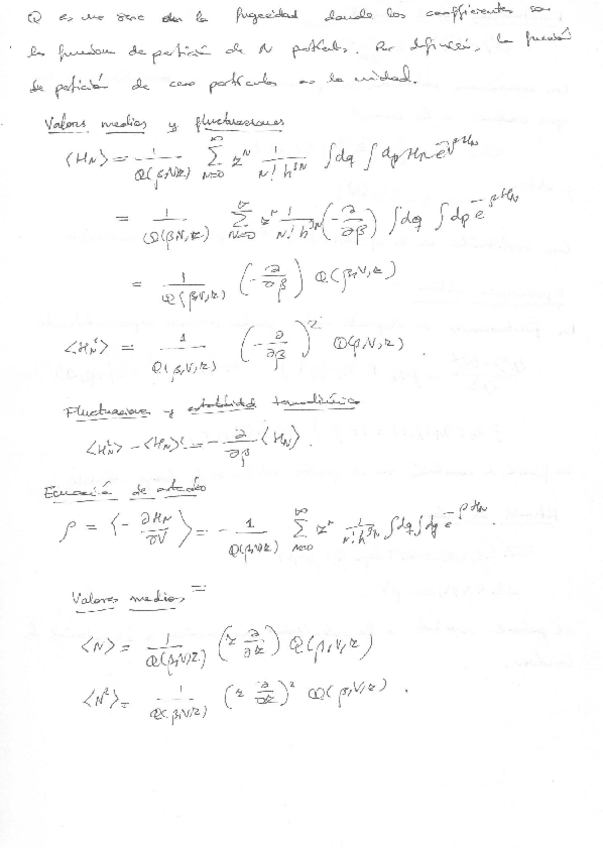 Q es una serie de la fugacidad donde los coefficientes son
las funciones de partición de N partículas. Por definición, la función
de partición de cero partículas es la unidad.
Valores medios y fluctuaciones
⟨H_N⟩ = 1/Q(β,V,z) ∑_{N=0}^{∞} z^N 1/(N! h^{3N}) ∫dq ∫dp H_N e^{-βH_N}
= 1/Q(β,V,z) ∑_{N=0}^{∞} z^N 1/(N! h^{3N}) (-∂/∂β) ∫dq ∫dp e^{-βH_N}
= 1/Q(β,V,z) (-∂/∂β) Q(β,V,z)
⟨H_N²⟩ = 1/Q(β,V,z) (-∂/∂β)² Q(β,V,z).
Fluctuaciones y estabilidad termodinámica
⟨H_N²⟩ - ⟨H_N⟩² = -∂/∂β ⟨H_N⟩.
Ecuación de estados
p = ⟨-∂H_N/∂V⟩ = - 1/Q(β,V,z) ∑_{N=0}^{∞} z^N 1/(N! h^{3N}) ∫dq ∫dp e^{-βH_N}.
Valores medios =
⟨N⟩ = 1/Q(β,V,z) (z ∂/∂z) Q(β,V,z)
⟨N²⟩ = 1/Q(β,V,z) (z ∂/∂z)² Q(β,V,z).